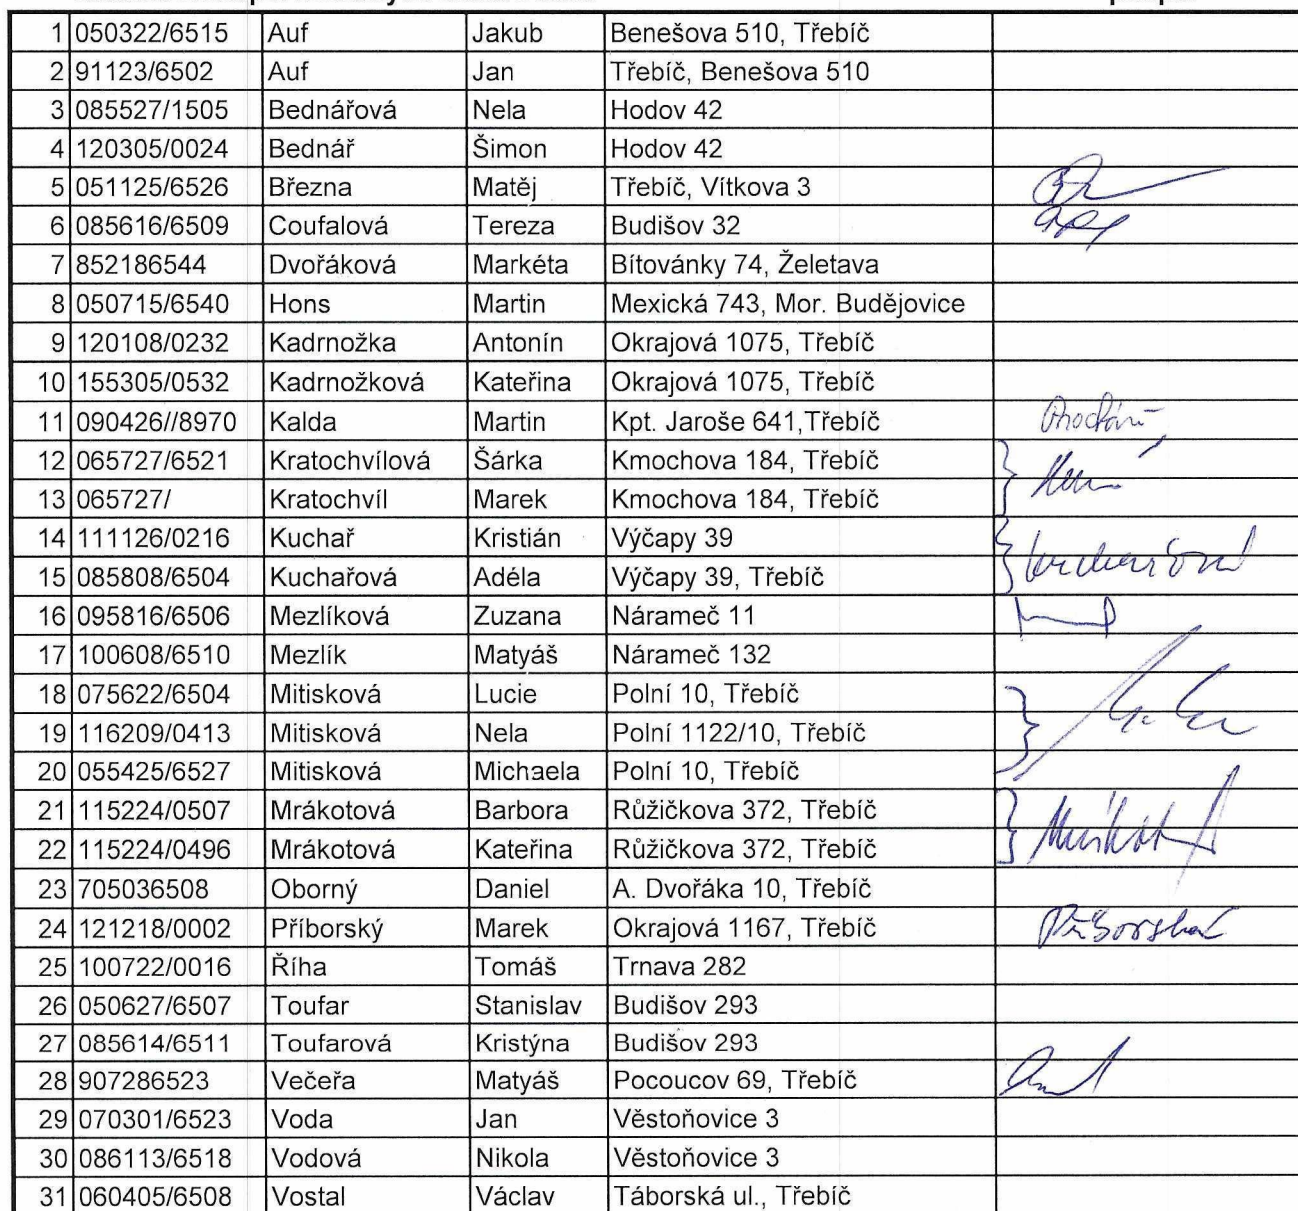 1 050322/6515 Auf Jakub Benešova 510, Třebíč
2 91123/6502 Auf Jan Třebíč, Benešova 510
3 085527/1505 Bednářová Nela Hodov 42
4 120305/0024 Bednář Šimon Hodov 42
5 051125/6526 Března Matěj Třebíč, Vítkova 3
6 085616/6509 Coufalová Tereza Budišov 32
7 852186544 Dvořáková Markéta Bítovánky 74, Želetava
8 050715/6540 Hons Martin Mexická 743, Mor. Budějovice
9 120108/0232 Kadrnožka Antonín Okrajová 1075, Třebíč
10 155305/0532 Kadrnožková Kateřina Okrajová 1075, Třebíč
11 090426//8970 Kalda Martin Kpt. Jaroše 641,Třebíč
12 065727/6521 Kratochvílová Šárka Kmochova 184, Třebíč
13 065727/ Kratochvíl Marek Kmochova 184, Třebíč
14 111126/0216 Kuchař Kristián Výčapy 39
15 085808/6504 Kuchařová Adéla Výčapy 39, Třebíč
16 095816/6506 Mezlíková Zuzana Nárameč 11
17 100608/6510 Mezlík Matyáš Nárameč 132
18 075622/6504 Mitisková Lucie Polní 10, Třebíč
19 116209/0413 Mitisková Nela Polní 1122/10, Třebíč
20 055425/6527 Mitisková Michaela Polní 10, Třebíč
21 115224/0507 Mrákotová Barbora Růžičkova 372, Třebíč
22 115224/0496 Mrákotová Kateřina Růžičkova 372, Třebíč
23 705036508 Oborný Daniel A. Dvořáka 10, Třebíč
24 121218/0002 Příborský Marek Okrajová 1167, Třebíč
25 100722/0016 Říha Tomáš Trnava 282
26 050627/6507 Toufar Stanislav Budišov 293
27 085614/6511 Toufarová Kristýna Budišov 293
28 907286523 Večeřa Matyáš Pocoucov 69, Třebíč
29 070301/6523 Voda Jan Věstoňovice 3
30 086113/6518 Vodová Nikola Věstoňovice 3
31 060405/6508 Vostal Václav Táborská ul., Třebíč